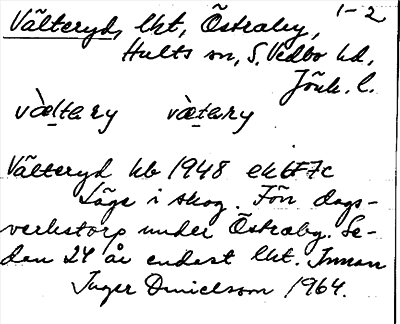 1-2
Välteryd, lht, Östraby,
Hults sn, S. Vedbo hd,
Jönk. l.
væ̀lta̠ry væ̀ta̠ry
Välteryd hb 1948 ek 6F7c
Läge i skog. Förr dags-
verkstorp under Östraby. Se-
dan 24 år endast lht. Innan
Inger Danielsson 1964.